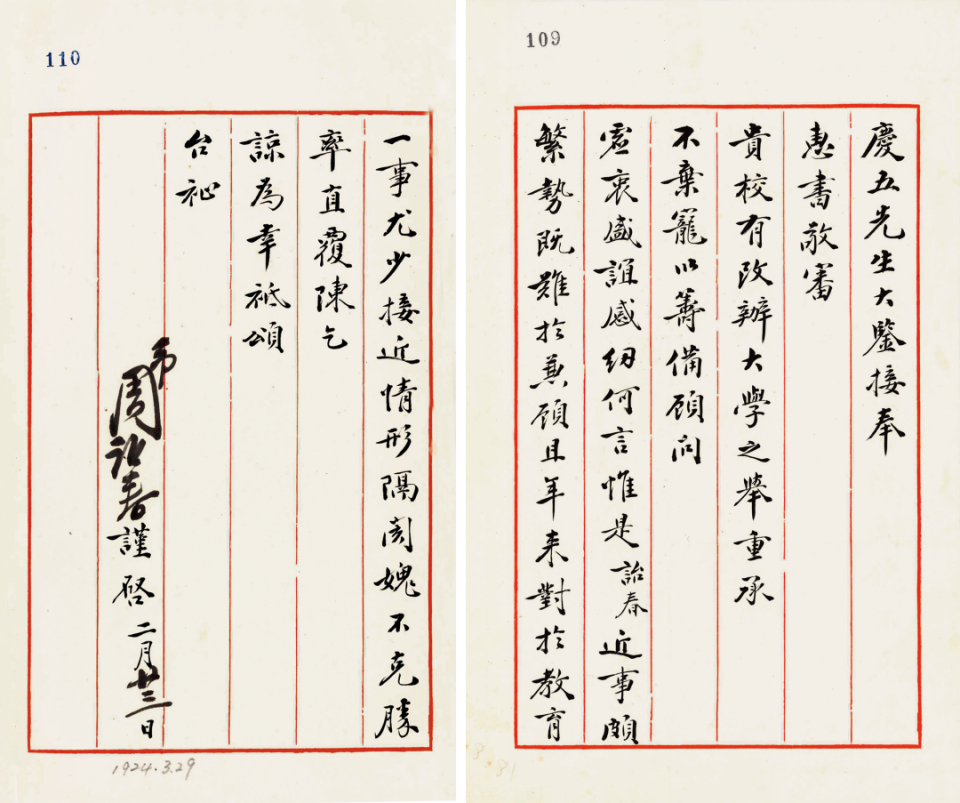 109
慶五先生大鑒接奉
惠書敬審
貴校有改辦大學之舉重承
不棄寵以籌備顧問
虛衷盛誼感紉何言惟是詒春近事頗
繁勢既難於兼顧且年来對於教育
110
一事尤少接近情形隔閡媿不克勝
率直覆陳乞
諒為幸祗頌
台祉
弟周詒春謹啓二月廿三日
1924.3.29